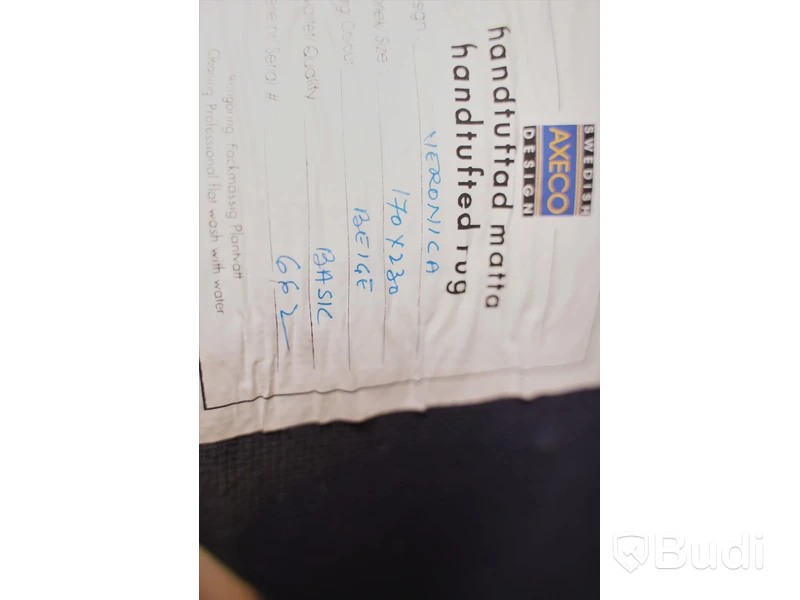 SWEDISH
AXECO
DESIGN
handtuftad matta
handtufted rug
sign: VERONICA
Size 170 x 230
Colour BEIGE
Quality BASIC
Serial # 662
Rengöring Fackmässig Plantvätt
Cleaning Professional flat wash with water
Budi